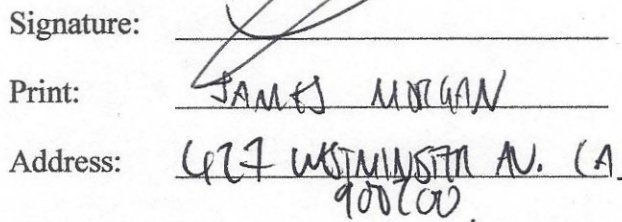 Signature:
Print: JAMES MORGAN
Address: 427 WESTMINSTER AV. CA.
900200